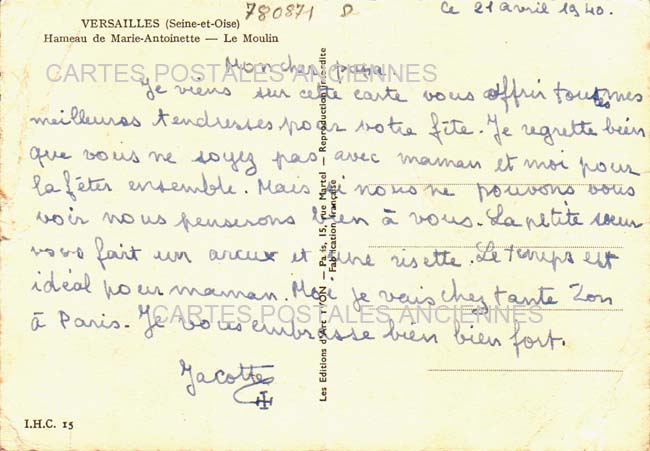 VERSAILLES (Seine-et-Oise)
Hameau de Marie-Antoinette — Le Moulin
780871 D
Ce 21 avril 1940.
Mon cher papa
CARTES POSTALES ANCIENNES
Je viens sur cette carte vous offrir toutes mes
meilleures tendresses pour votre fête. Je regrette bien
que vous ne soyez pas avec maman et moi pour
la fêter ensemble. Mais si nous ne pouvons vous
voir nous penserons bien à vous. La petite sœur
vous fait un areux et une risette. Le temps est
idéal pour maman. Moi je vais chez tante Zon
à Paris. Je vous embrasse bien bien fort.
CARTES POSTALES ANCIENNES
Jacotte
Les Editions d'Art YVON — Paris, 15, rue Martel — Reproduction interdite
Fabrication française
I.H.C. 15